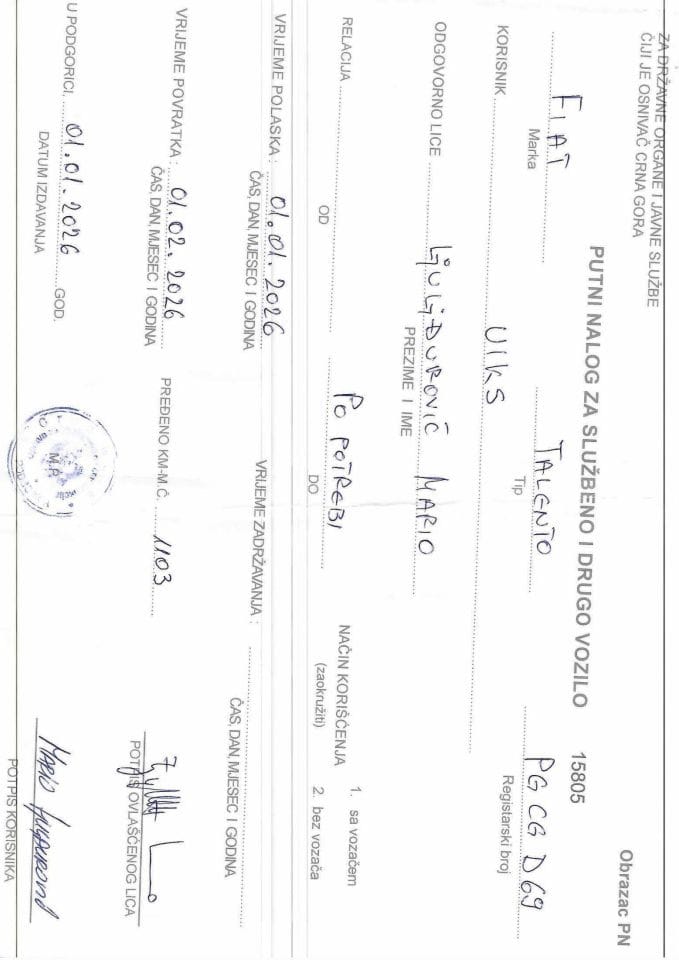 ZA DRŽAVNE ORGANE I JAVNE SLUŽBE
ČIJI JE OSNIVAČ CRNA GORA
Obrazac PN
PUTNI NALOG ZA SLUŽBENO I DRUGO VOZILO 15805
FIAT TALENTO PG CG D69
Marka Tip Registarski broj
KORISNIK UIKS
ODGOVORNO LICE LJULJĐUROVIĆ MARIO
PREZIME I IME
NAČIN KORIŠĆENJA
(zaokružiti)
1. sa vozačem
2. bez vozača
RELACIJA PO POTREBI
OD DO
VRIJEME POLASKA : 01.01.2026 VRIJEME ZADRŽAVANJA :
ČAS, DAN, MJESEC I GODINA ČAS, DAN, MJESEC I GODINA
VRIJEME POVRATKA : 01.02.2026 PREĐENO KM-M.Č. 1103
ČAS, DAN, MJESEC I GODINA POTPIS OVLAŠĆENOG LICA
U PODGORICI, 01.01.2026 GOD.
DATUM IZDAVANJA
M.P.
MARIO
POTPIS KORISNIKA